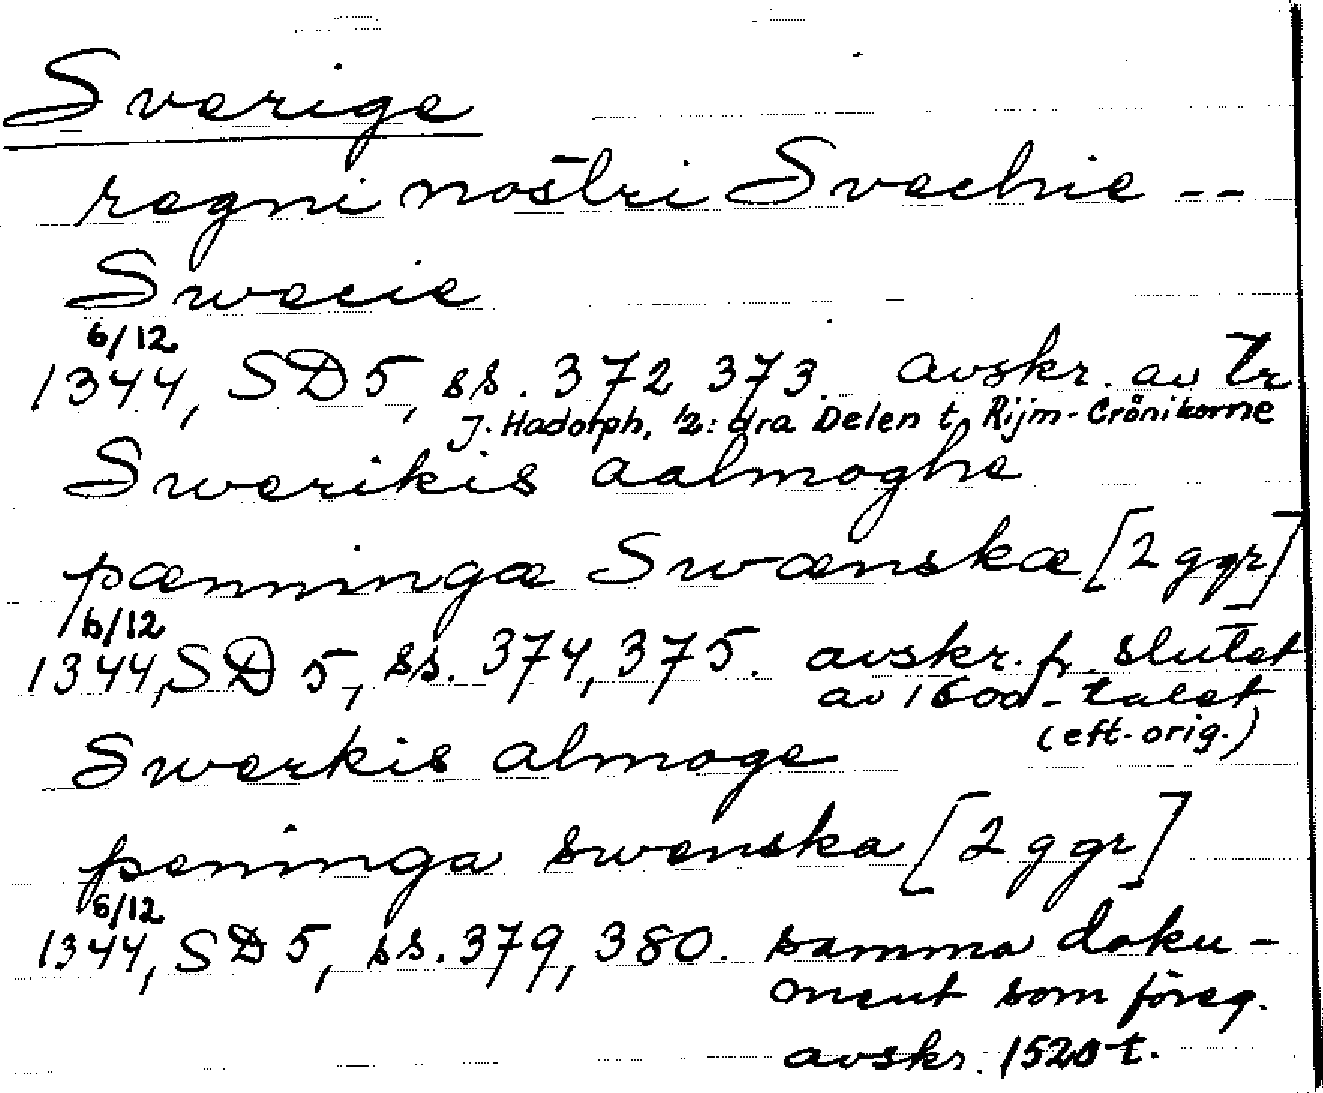 Sverige
regni nostri Svechie --
Swecie
6/12
1344, SD 5, ss. 372 373. avskr. av tr
J. Hadorph, 2:dra Delen t. Rijm-Crönikorne
Swerikis aalmoghe
pænningæ Swænskæ [2 ggr]
6/12
1344, SD 5, ss. 374, 375. avskr. fr slutet
av 1600-talet
(eft. orig.)
Swerkis almoge
peninga swenska [2 ggr]
6/12
1344, SD 5, ss. 379, 380. samma doku-
ment som föreg.
avskr. 1520-t.